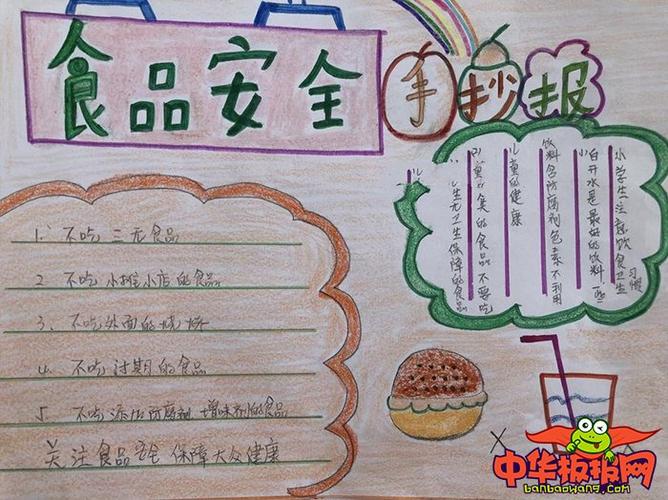 食品安全手抄报
1. 不吃三无食品
2 不吃小摊小店的食品
3、不吃外面的烧烤
4 不吃过期的食品
5 不吃添加防腐剂 增味剂的食品
关注食品安全 保障大众健康
小学生注意饮食卫生习惯
白开水是最好的饮料 一些
饮料含防腐剂色素不利用
儿童的健康
的食品不要吃
生无卫生保障的食品
中华板报网
banbaowang.com